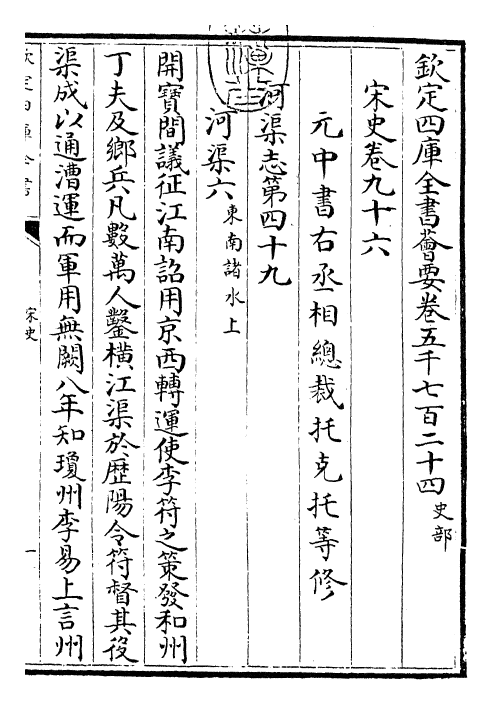 欽定四庫全書薈要卷五千七百二十四 史部
宋史卷九十六
元中書右丞相總裁托克托等修
河渠志第四十九
河渠六 東南諸水上
開寶間議征江南詔用京西轉運使李符之策發和州
丁夫及鄉兵凡數萬人鑿橫江渠於歷陽令符督其役
渠成以通漕運而軍用無闕八年知瓊州李易上言州
宋史
一